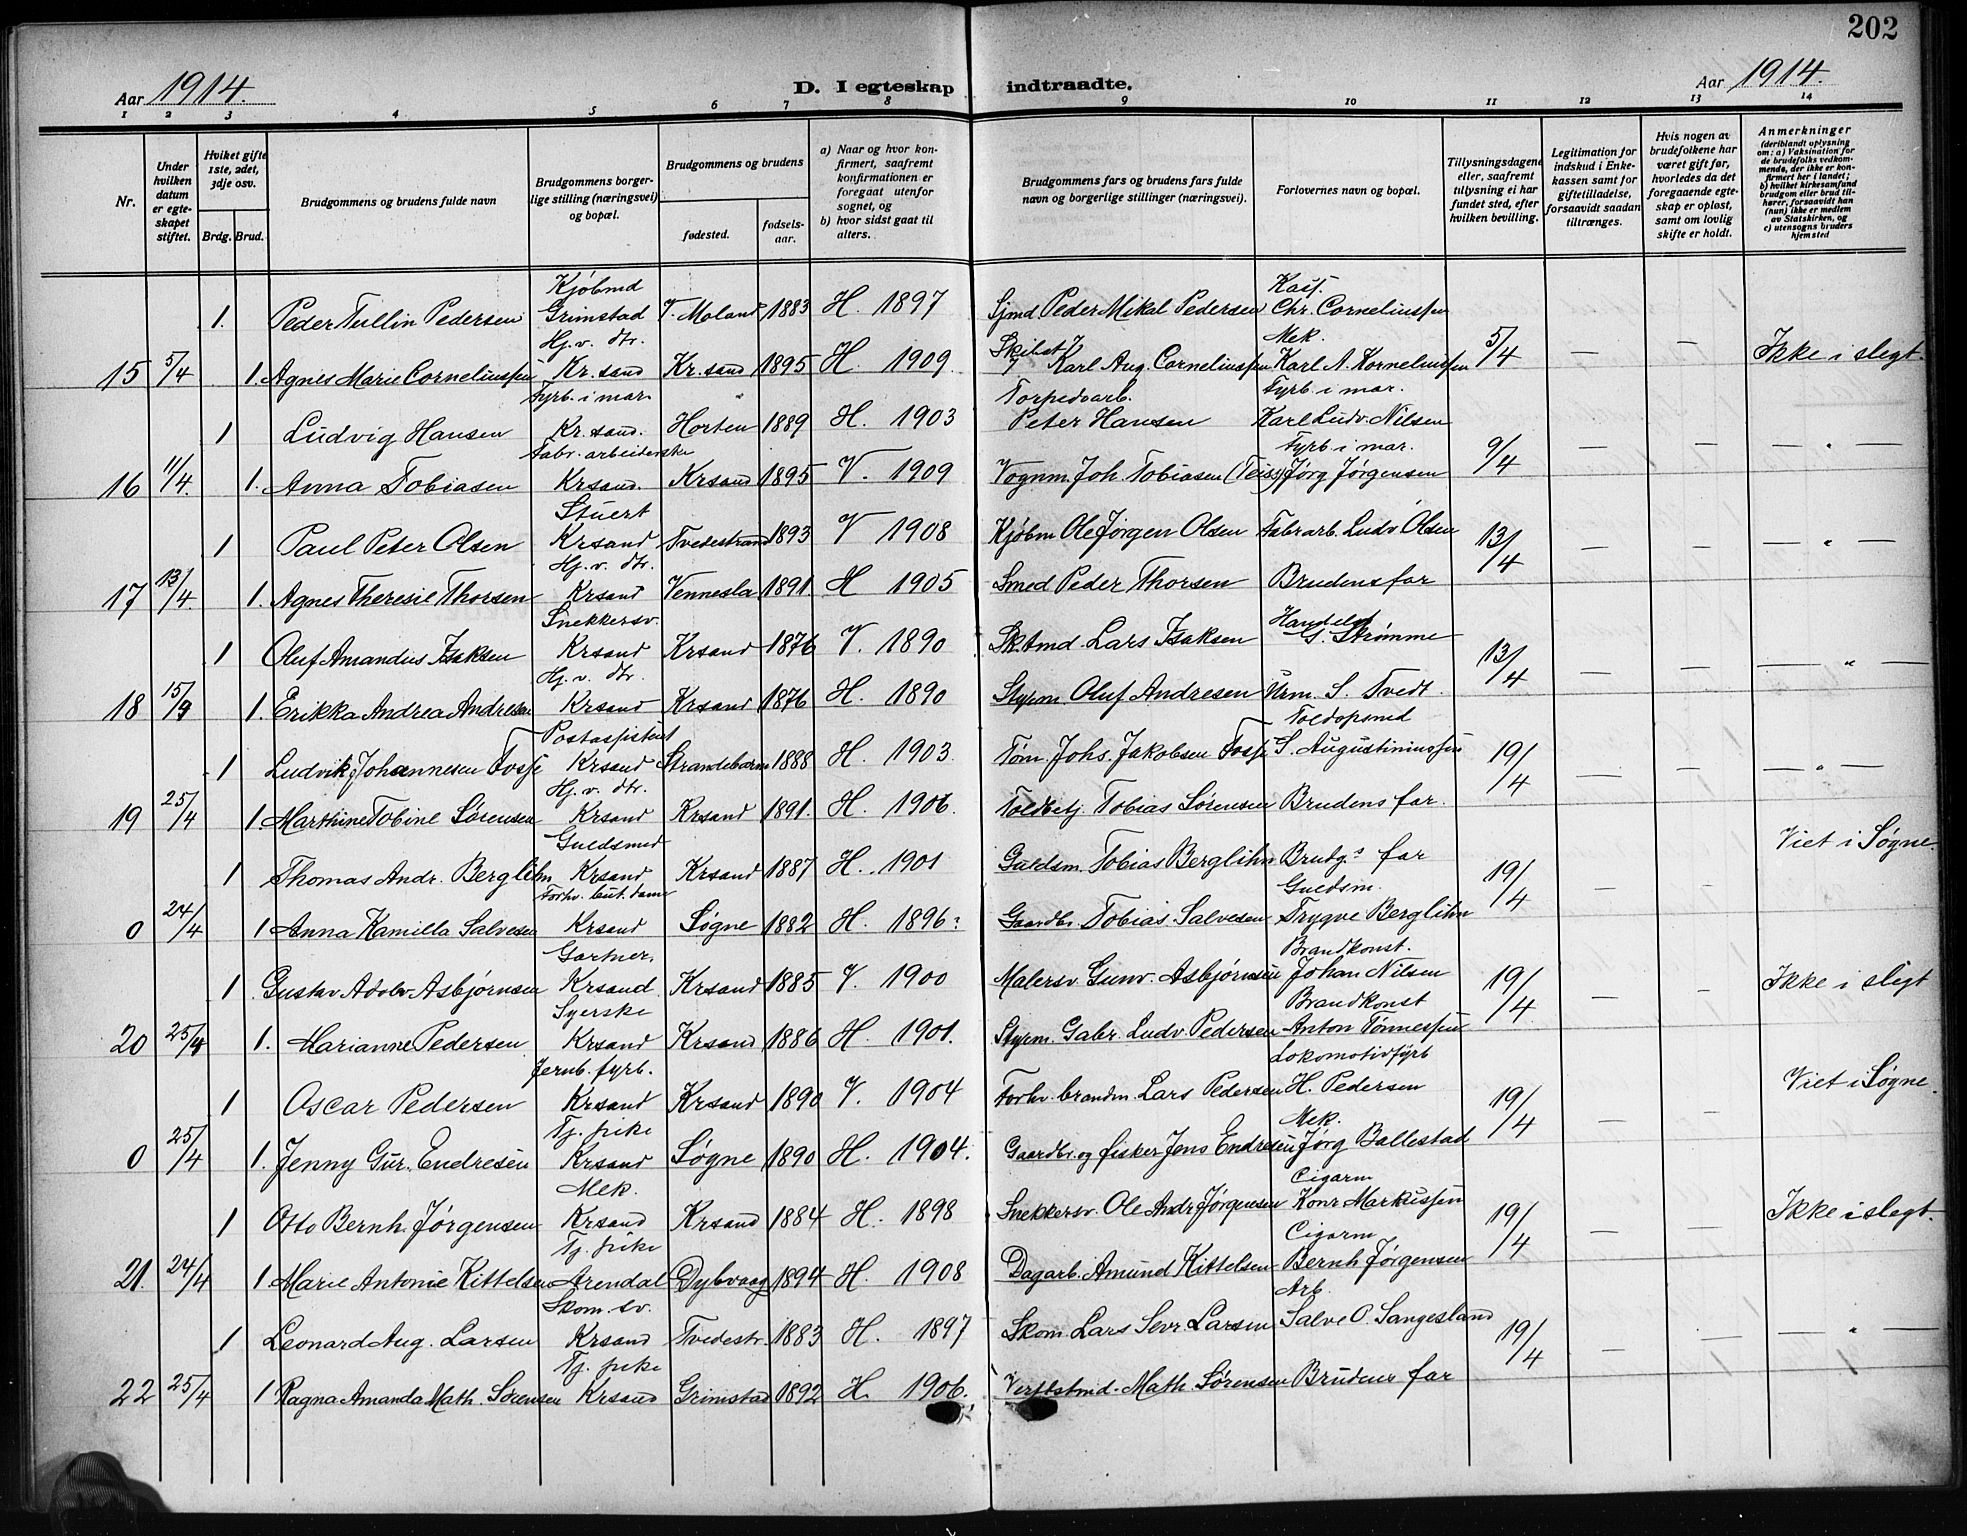 202
Aar 1914. D. I egteskap indtraadte. Aar 1914.
1 2 3 4 5 6 7 8 9 10 11 12 13 14
Nr.
Under hvilken datum er egteskapet stiftet.
Hviket gifte 1ste, 2det, 3dje osv.
Brdg. Brud.
Brudgommens og brudens fulde navn
Brudgommens borgerlige stilling (næringsvei) og bopæl.
Brudgommens og brudens
fødested. fødselsaar.
a) Naar og hvor konfirmert, saafremt konfirmationen er foregaat utenfor sognet, og
b) hvor sidst gaat til alters.
Brudgommens fars og brudens fars fulde navn og borgerlige stillinger (næringsvei).
Forlovernes navn og bopæl.
Tillysningsdagene eller, saafremt tillysning ei har fundet sted, efter hvilken bevilling.
Legitimation for indskud i Enkekassen samt for giftetilladelse, forsaavidt saadan tiltrænges.
Hvis nogen av brudefolkene har været gift før, hvorledes da det foregaaende egteskap er opløst, samt om lovlig skifte er holdt.
Anmerkninger (deriblandt oplysning om: a) Vaksination for de brudefolks vedkommende, der ikke er konfirmert her i landet; b) hvilket kirkesamfund brudgom eller brud tilhører, forsaavidt han (hun) ikke er medlem av Statskirken, og c) utensogns bruders hjemsted
Kjöbmd Kass.
1. Peder Tullin Pedersen Grimstad V. Moland 1883 H. 1897 Sjmd Peder Mikal Pedersen Chr. Corneliussen
Hj. v. dtr. Skibst. Mek. 5/4
15 5/4 1. Agnes Marie Corneliussen Kr.sand Kr.sand 1895 H. 1909. Karl Aug. Corneliussen Karl A. Korneliussen — — Ikke i slegt.
Fyrb. i mar. Torpedoarb. Fyrb. i mar.
1 Ludvig Hansen Kr.sand. Horten 1889 H. 1903 Peter Hansen Karl Ludv. Nilsen
Fabr. arbeiderske Fyrb. i mar. 9/4 — — — „ —
16 11/4. 1. Anna Tobiasen Krsand. Krsand 1895 V. 1909 Vognm. Joh. Tobiasen (Teiss) Jörg Jörgensen
Stuert
1 Paul Peter Olsen Krsand Tvedestrand 1893 V 1908 Kjöbm Ole Jörgen Olsen Fabrarb. Ludv Olsen 13/4 — — — „ —
Hj. v. dtr.
17 13/4 1. Agnes Theresie Thorsen Krsand Vennesla 1891 H 1905 Smed Peder Thorsen Brudens far
Snekkersv. Handelsb.
1 Oluf Amandus Isaksen Krsand Krsand 1876 V. 1890 Sk.tmd. Lars Isaksen G. Strömme 13/4
Hj. v. dtr. — — — „ —
18 15/9 1. Erikka Andrea Andresen Krsand Krsand 1876 H. 1890 Styrm. Oluf Andresen Urm. S. Tvedt.
Postassistent Toldopsmd
1 Ludvik Johannesen Fosse Krsand Strandebarm 1888 H. 1903. Töm. Johs. Jakobsen Fosse S. Augustiniussen 19/4 — — — „ —
Hj. v. dtr.
19 25/4 1 Marthine Tobine Sörensen Krsand Krsand 1891. H. 1906. Toldbetj. Tobias Sörensen Brudens far.
Guldsmed Viet i Søgne.
1 Thomas Andr. Berglihn Krsand Krsand 1887 H. 1901 Guldsm. Tobias Berglihn Brudg.s far 19/4
Forhv. but. dame Guldsm. — —
0 24/4 1 Anna Kamilla Salvesen Krsand Søgne 1882 H. 1896. Gaardbr. Tobias Salvesen Trygve Berglihn
Gartner. Brandkonst.
1 Gustav Adolv Asbjörnsen Krsand Krsand 1885 V. 1900 Malersv. Gunv. Asbjörnsen Johan Nilsen 19/4 — — Ikke i slegt
Syerske Brandkonst
20 25/4 1. Marianne Pedersen Krsand Krsand 1886 H. 1901. Styrm. Gabr. Ludv. Pedersen Anton Tönnessen
Jernb. fyrb. Lokomotivfyrb
1 Oscar Pedersen Krsand Krsand 1890 V. 1904 Forhv. brandm. Lars Pedersen H. Pedersen 19/4 — — Viet i Søgne.
Tj. pike Mek.
0 25/4 1. Jenny Gur. Endresen Krsand Søgne 1890 H. 1904. Gaardbr. og fisker Jens Endresen Jörg Ballestad
Mek. Cigarm
1 Otto Bernh. Jörgensen Krsand Krsand 1884 H. 1898 Snekkersv. Ole Andr Jörgensen Konr Markussen 19/4 — — Ikke i slegt.
Tj. pike Cigarm
21. 24/4 1 Marie Antonie Kittelsen Arendal Dybvaag 1894 H. 1908 Dagarb. Amund Kittelsen Bernh Jörgensen
Skom. sv. Arb.
1 Leonard Aug. Larsen Krsand Tvedestr. 1883 H. 1897 Skom. Lars Sevr. Larsen Salve O. Sangesland 19/4 — — — „ —
Tj. pike
22 25/4 1 Ragna Amanda Math. Sörensen Krsand Grimstad 1892 H. 1906. Verftstmd. Math. Sörensen Brudens far